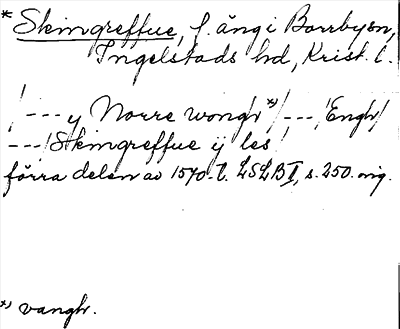 * Skingreffue, f. äng i Borrbysn,
Ingelstads hd, Krist. l.
/--- y Norre wongh *)/---/Engh/
---/Skingreffue ij les/
förra delen av 1570-t. LSLB I, s. 250. mg.
*) vangh.